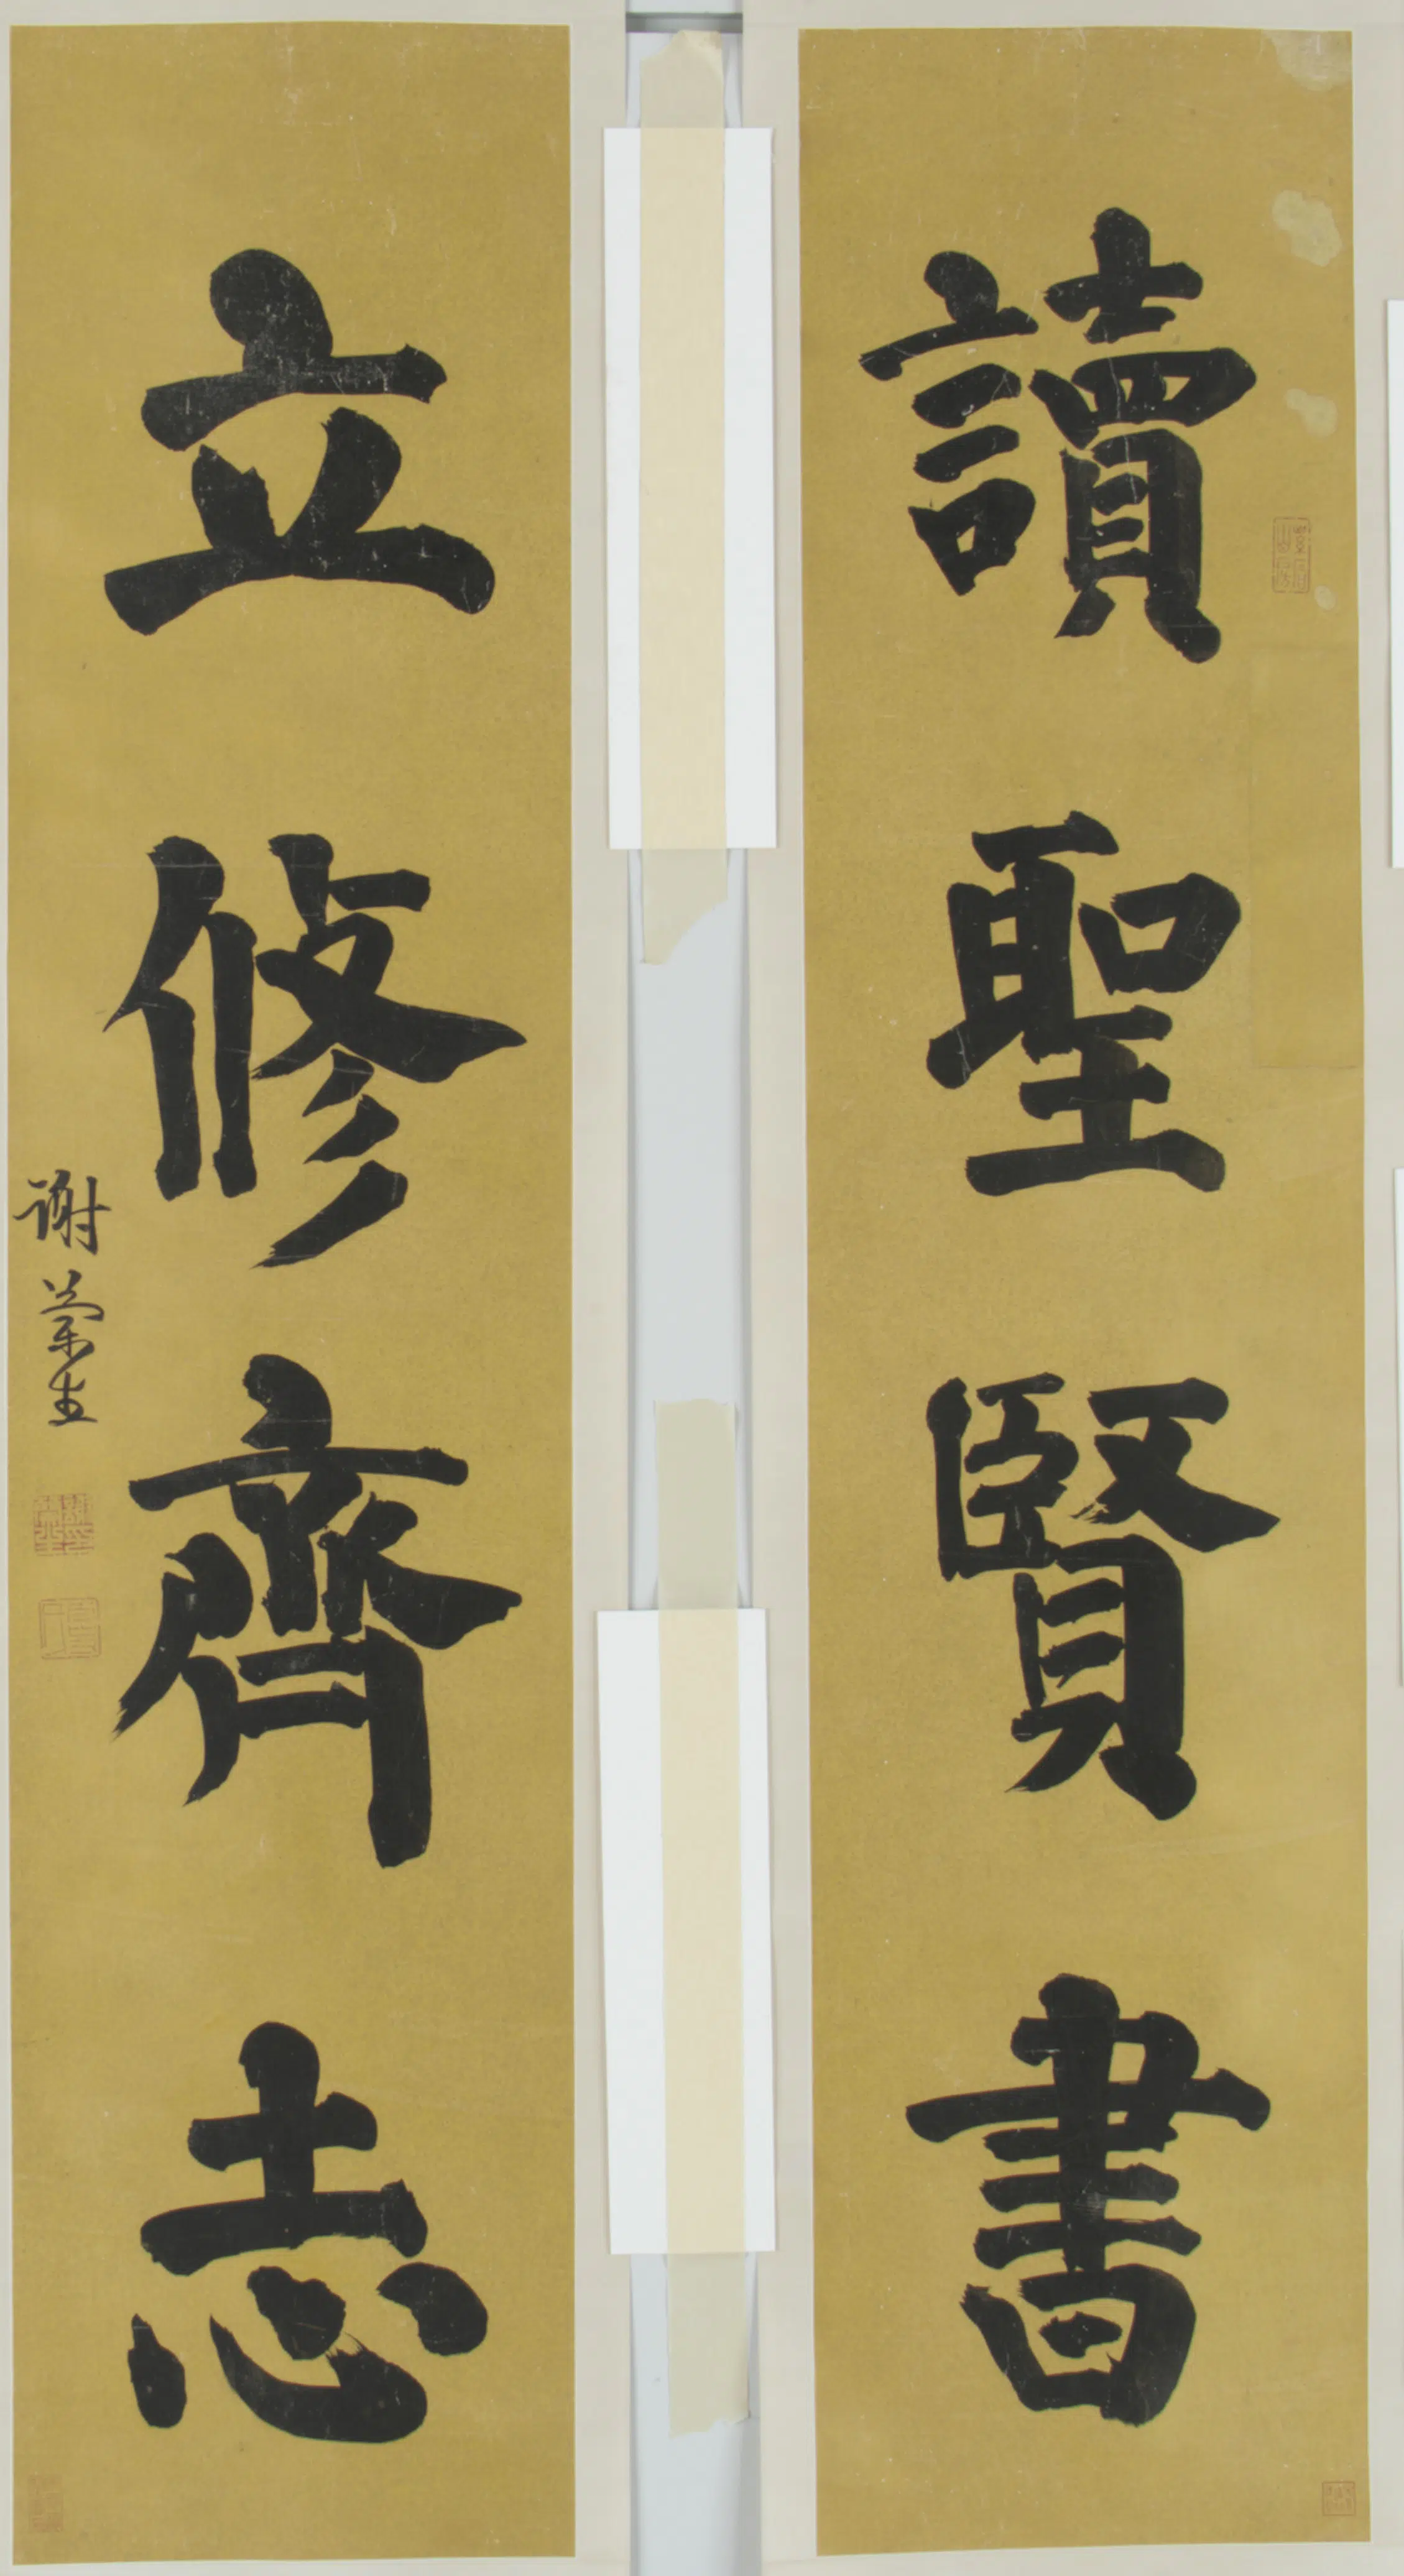 讀聖賢書
立修齊志
谢蘭生